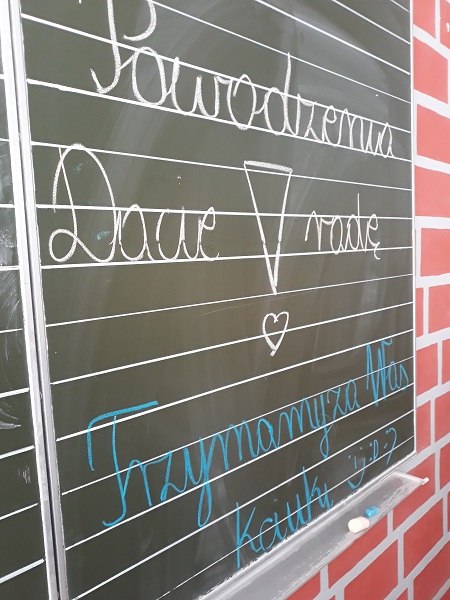 Powodzenia
Dacie ! radę
Trzymamy za Was
kciuki